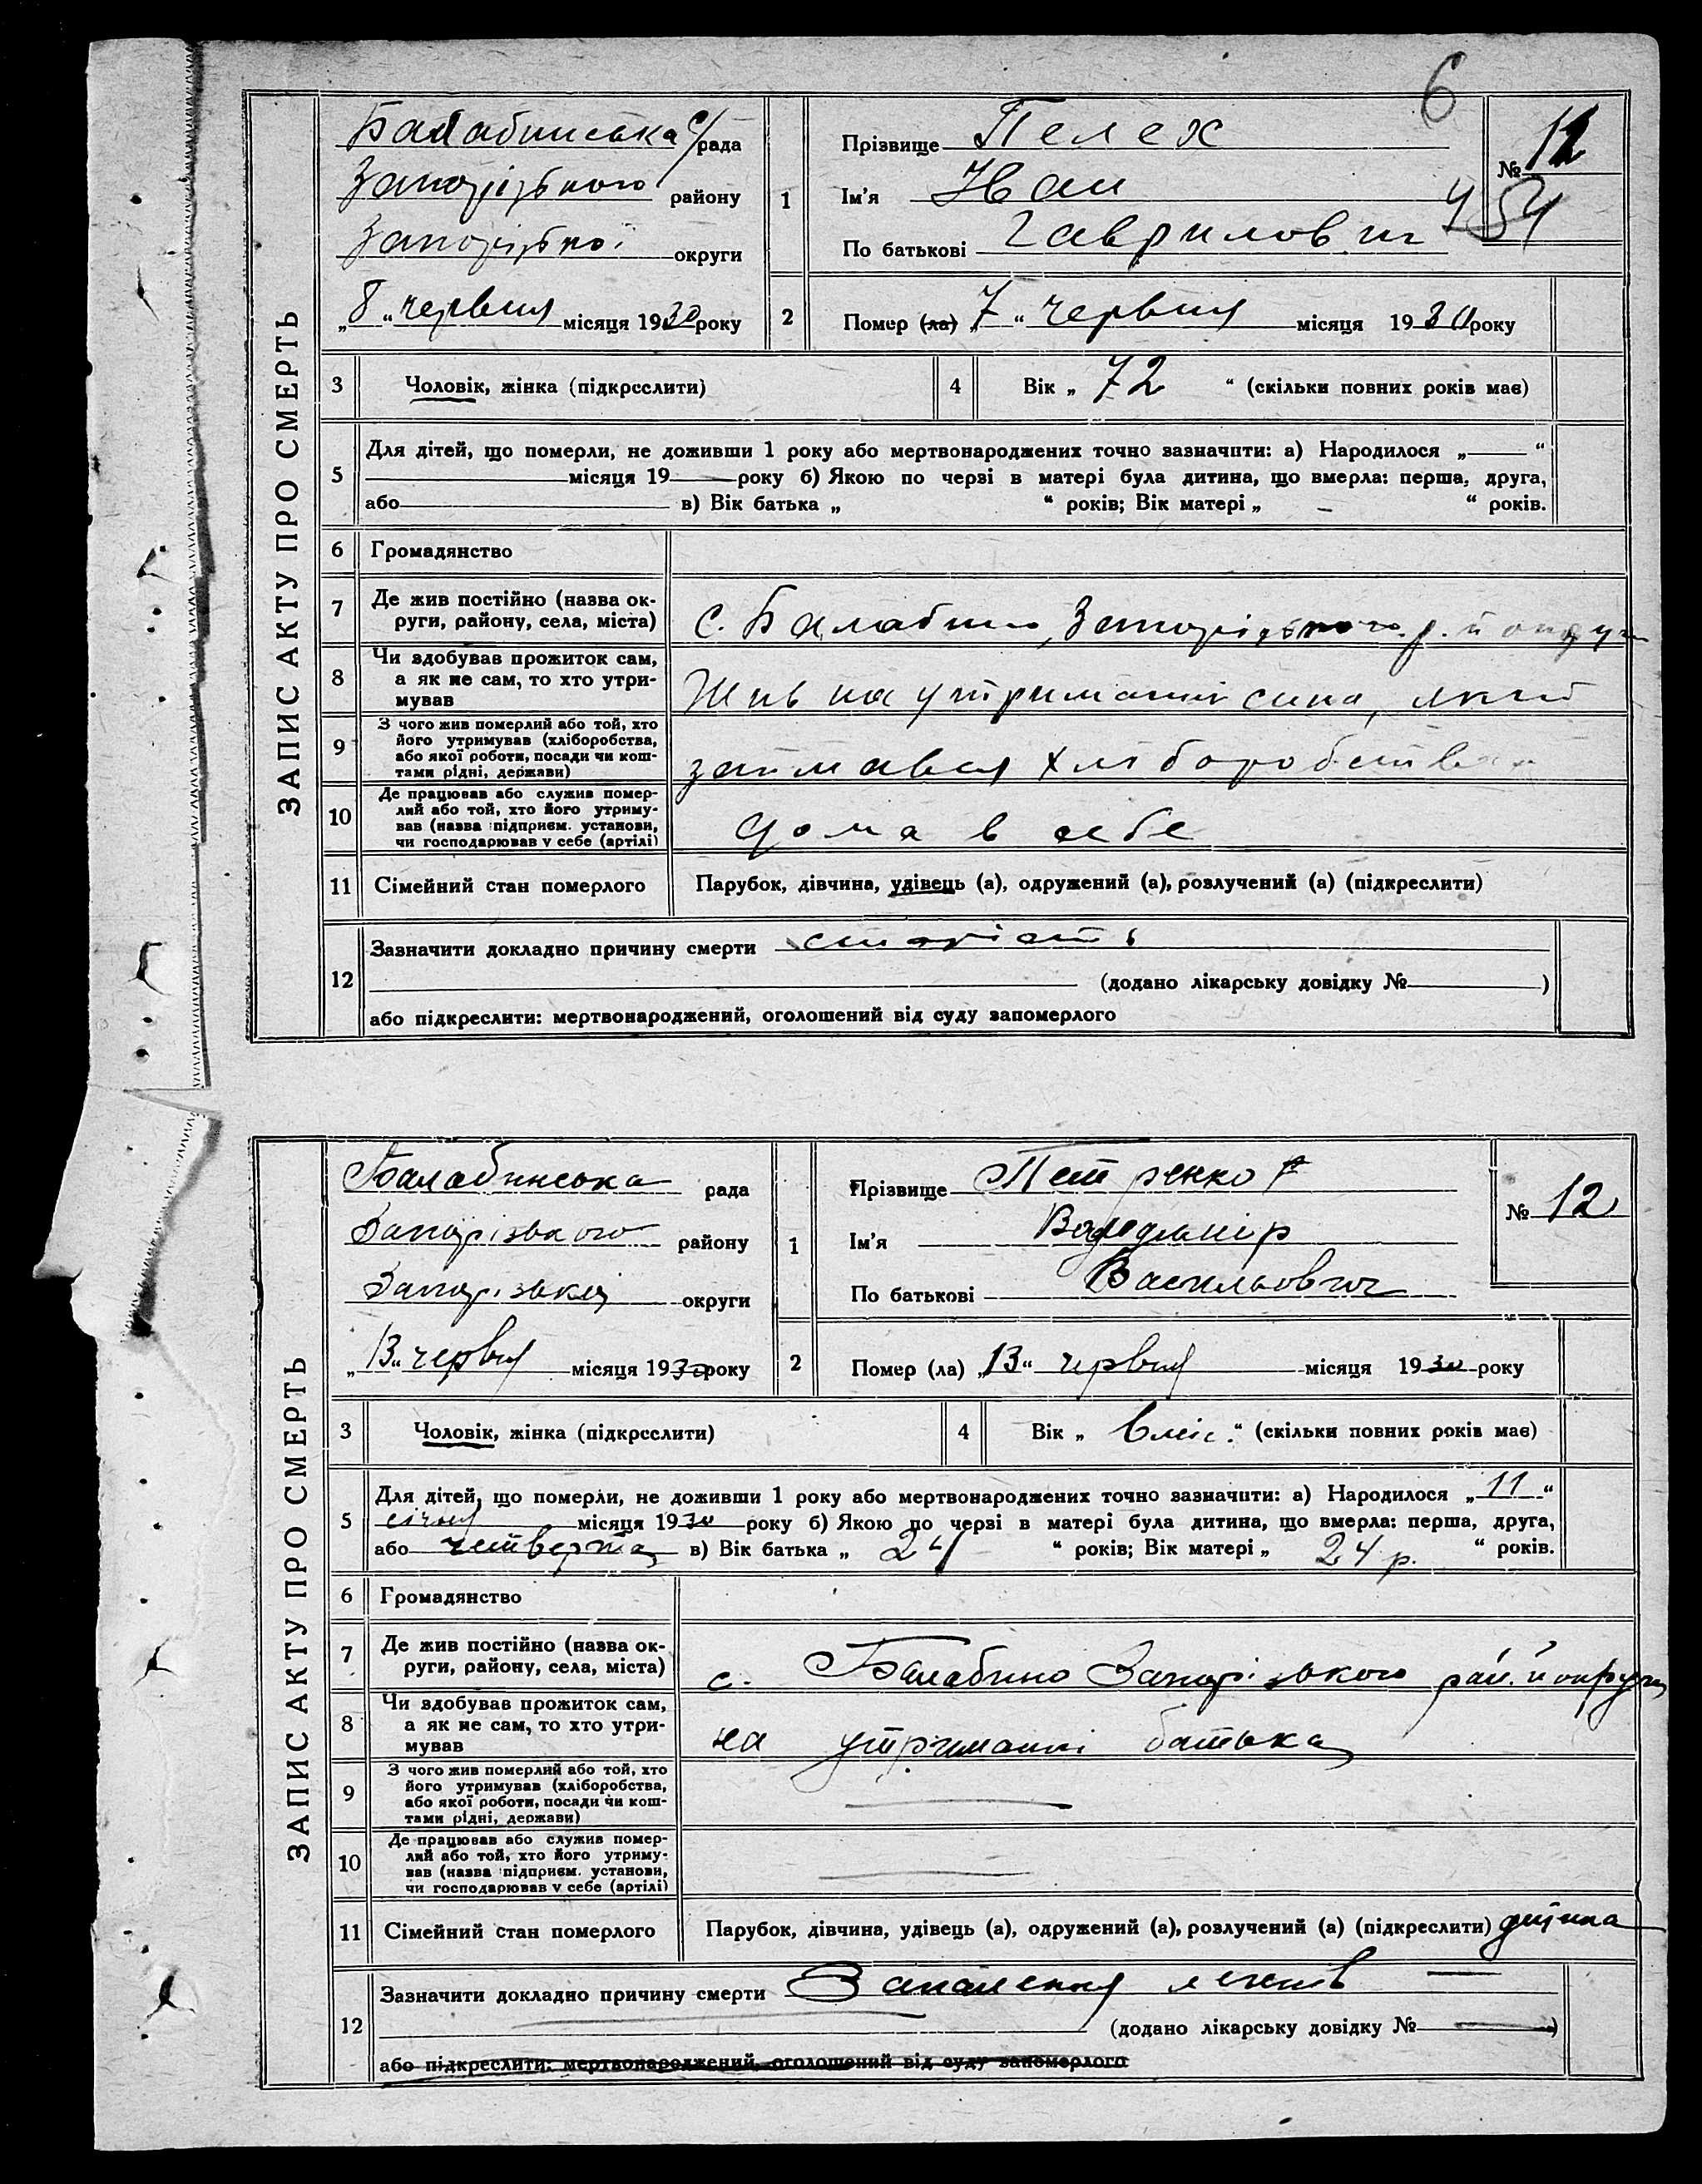 6
ЗАПИС АКТУ ПРО СМЕРТЬ
Балабинська с/рада
Запорізького району
Запорізької округи
„8“ червня місяця 1930 року
1
Прізвище Пелех
Ім'я Иван
По батькові Гаврилович
№ 11
454
2
Помер (ла) „7“ червня місяця 1930 року
3 Чоловік, жінка (підкреслити)
4 Вік „72“ (скільки повних років має)
5 Для дітей, що померли, не доживши 1 року або мертвонароджених точно зазначити: а) Народилося „ “
місяця 19 року б) Якою по черзі в матері була дитина, що вмерла: перша, друга,
або в) Вік батька „ “ років; Вік матері „ – “ років.
6 Громадянство
7 Де жив постійно (назва ок-
руги, району, села, міста)
с. Балабино, Запорізького р. й округи
8 Чи здобував прожиток сам,
а як не сам, то хто утри-
мував
Жив на утриманні сина, який
9 З чого жив померлий або той, хто
його утримував (хліборобства,
або якої роботи, посади чи кош-
тами рідні, держави)
займався хліборобством
10 Де працював або служив помер-
лий або той, хто його утриму-
вав (назва підприєм. установи,
чи господарював у себе (артілі)
дома в себе
11 Сімейний стан померлого
Парубок, дівчина, удівець (а), одружений (а), розлучений (а) (підкреслити)
12 Зазначити докладно причину смерти старість
(додано лікарську довідку № )
або підкреслити: мертвонароджений, оголошений від суду запомерлого
ЗАПИС АКТУ ПРО СМЕРТЬ
Балабинська рада
Запорізького району
Запорізької округи
„13“ червня місяця 1930 року
1
Прізвище Петренко
Ім'я Володимір
По батькові Васильович
№ 12
2
Помер (ла) „13“ червня місяця 1930 року
3 Чоловік, жінка (підкреслити)
4 Вік „6 міс.“ (скільки повних років має)
5 Для дітей, що померли, не доживши 1 року або мертвонароджених точно зазначити: а) Народилося „11“
січня місяця 1930 року б) Якою по черзі в матері була дитина, що вмерла: перша, друга,
або четверта в) Вік батька „ 24 “ років; Вік матері „ 24 р. “ років.
6 Громадянство
7 Де жив постійно (назва ок-
руги, району, села, міста)
с. Балабино Запорізького рай. й округи
8 Чи здобував прожиток сам,
а як не сам, то хто утри-
мував
на утриманні батька
9 З чого жив померлий або той, хто
його утримував (хліборобства,
або якої роботи, посади чи кош-
тами рідні, держави)
10 Де працював або служив помер-
лий або той, хто його утриму-
вав (назва підприєм. установи,
чи господарював у себе (артілі)
11 Сімейний стан померлого
Парубок, дівчина, удівець (а), одружений (а), розлучений (а) (підкреслити) дитина
12 Зазначити докладно причину смерти Запалення легенів
(додано лікарську довідку № )
або підкреслити: мертвонароджений, оголошений від суду запомерлого